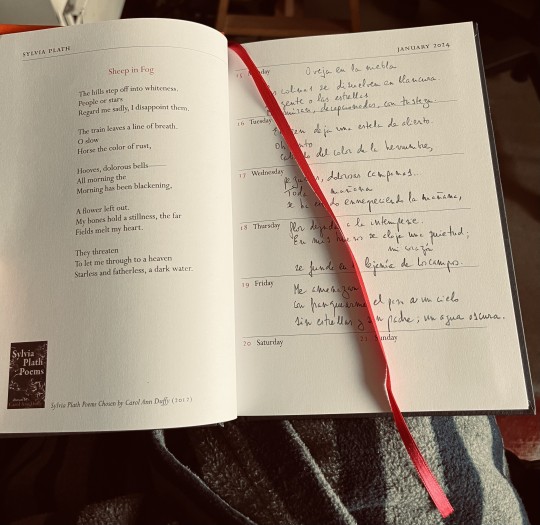 SYLVIA PLATH
Sheep in Fog
The hills step off into whiteness.
People or stars
Regard me sadly, I disappoint them.
The train leaves a line of breath.
O slow
Horse the color of rust,
Hooves, dolorous bells——
All morning the
Morning has been blackening,
A flower left out.
My bones hold a stillness, the far
Fields melt my heart.
They threaten
To let me through to a heaven
Starless and fatherless, a dark water.
Sylvia
Plath
Poems
Sylvia Plath Poems Chosen by Carol Ann Duffy (2012)
JANUARY 2024
15
Oveja en la niebla
colinas se disuelven en blancura.
gente o las estrellas
decepcionados, con tristeza
16 Tuesday
deja una estela de aliento.
del color de la herrumbre,
17 Wednesday
campanas.
mañana
ennegreciendo la mañana,
18 Thursday
Flor a la intemperie.
En mis se aloja una quietud;
mi corazón
se funde de los campos.
19 Friday
Me amenazan
con el paso a un cielo
sin estrellas y padre, un agua oscura.
20 Saturday